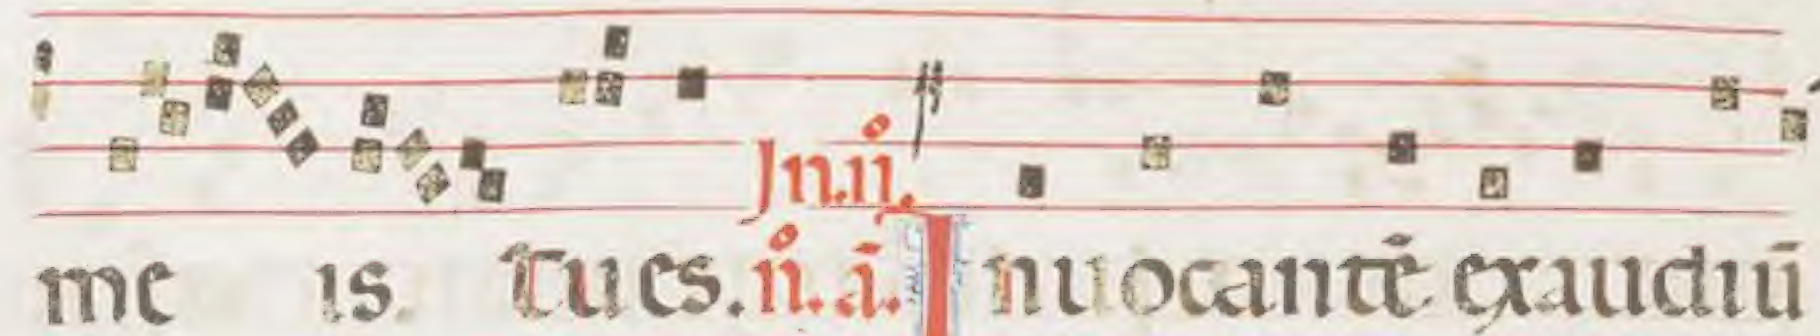 Jn.ij.
me is. Tu es. n̊. ā. Inuocantē exaudiuī